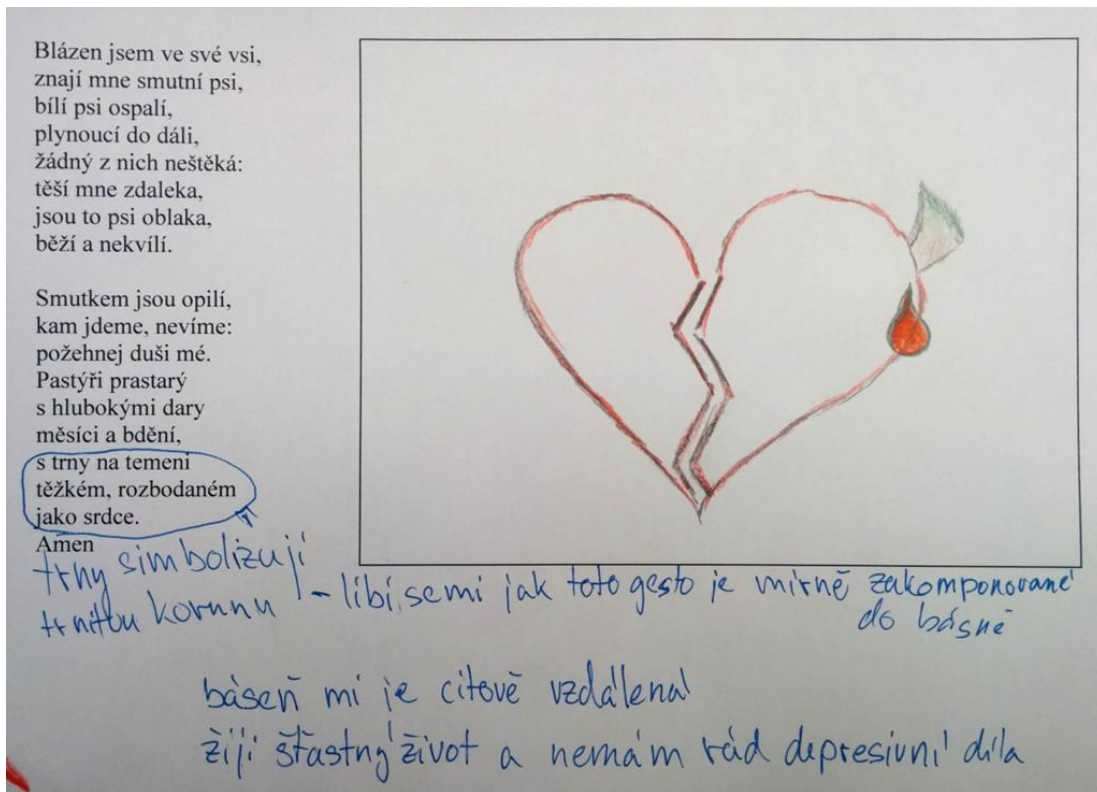 Blázen jsem ve své vsi,
znají mne smutní psi,
bílí psi ospalí,
plynoucí do dáli,
žádný z nich neštěká:
těší mne zdaleka,
jsou to psi oblaka,
běží a nekvílí.
Smutkem jsou opilí,
kam jdeme, nevíme:
požehnej duši mé.
Pastýři prastarý
s hlubokými dary
měsíci a bdění,
s trny na temeni
těžkém, rozbodaném
jako srdce.
Amen
trny simbolizují
trnitou korunu
- líbí semi jak toto gesto je mírně zakomponované
do básně
báseň mi je citově vzdálená
žiji šťastný život a nemám rád depresivní díla